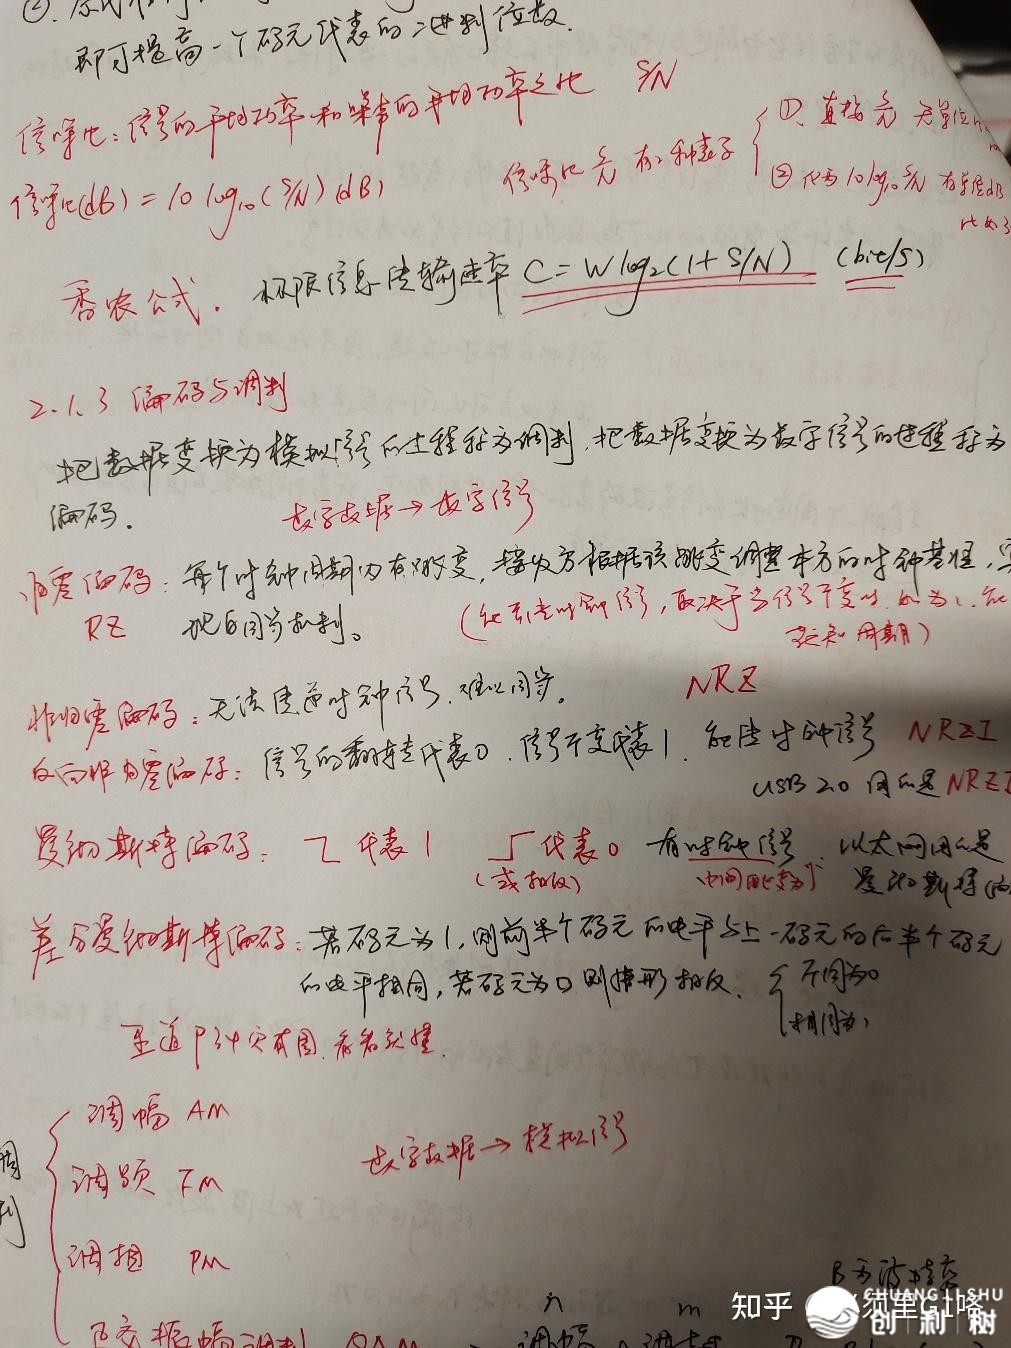 即可提高一个码元代表的二进制位数.
信噪比: 信号的平均功率和噪声的平均功率之比 S/N
信噪比(dB) = 10 log₁₀(S/N) (dB)
信噪比 有2种表示
① 直接 无单位
② 化为10 log₁₀ S/N 有单位dB
比如
香农公式. 极限信息传输速率 C = W log₂(1+S/N) (bit/s)
2.1.3 编码与调制
把数据变换为模拟信号的过程称为调制, 把数据变换为数字信号的过程称为
编码.
数字数据→数字信号
归零编码: 每个时钟周期内有跳变, 接收方根据该跳变调整本方的时钟基准,
RZ 机制。
周期)
非归零编码: 无法传递时钟信号, 难以同步。 NRZ
反向非归零编码: 信号的翻转代表0, 信号不变代表1. 能传时钟信号 NRZI
USB 2.0 用的是NRZI
曼彻斯特编码: 代表1 代表0 有时钟信号. 以太网用的是
(或相反) 曼彻斯特
差分曼彻斯特编码: 若码元为1, 则前半个码元的电平与上一码元的后半个码元
的电平相同, 若码元为0则情形相反.
不同为0
相同为1
王道P34页有图,
调制
调幅 AM
数字数据→模拟信号
调频 FM
调相 PM
B为波特率
正交振幅调制 QAM
n m
知乎
CHUANG LI SHU
创利树